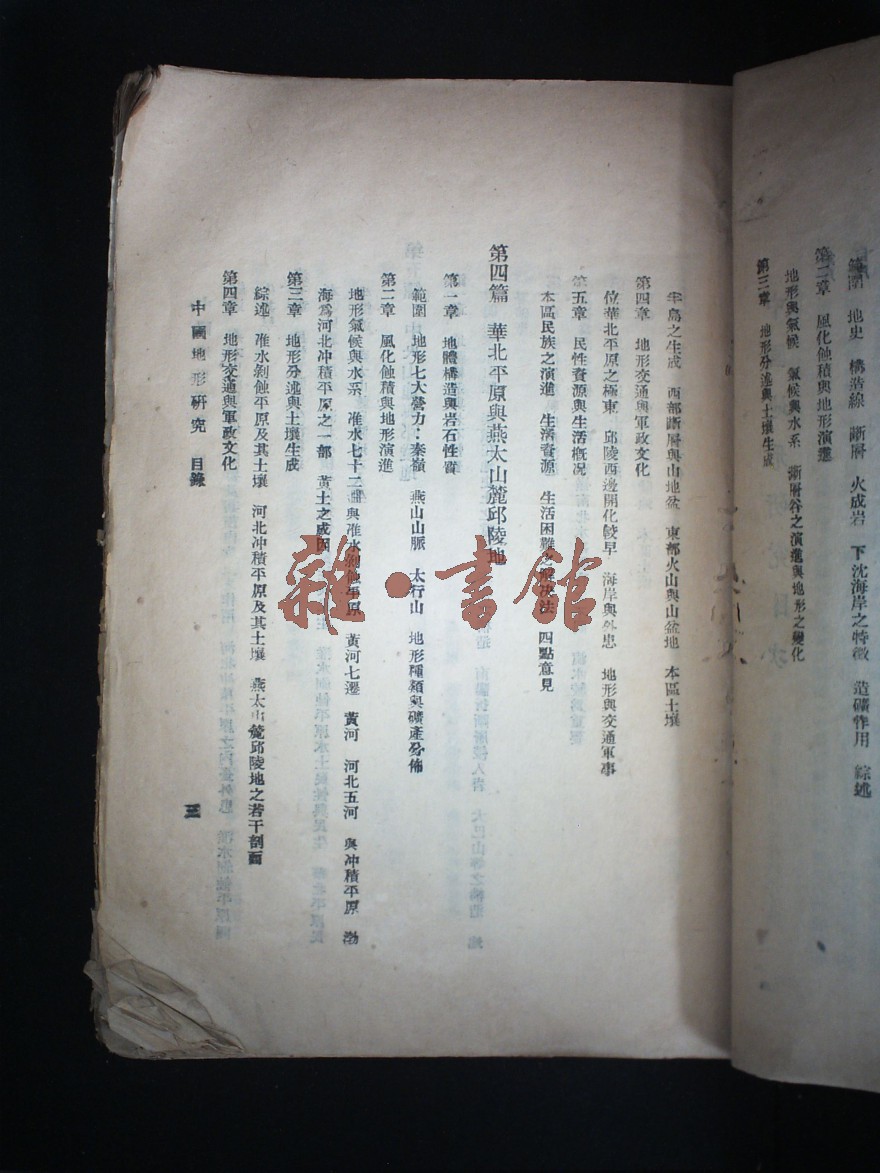 範圍　地史　構造線　斷層　火成岩　下沈海岸之特徵　造礦作用　綜述
第二章　風化蝕積與地形演進
地形與氣候　氣候與水系　斷層谷之演進與地形之變化
第三章　地形分述與土壤生成
半島之生成　西部斷層與山地盆　東部火山與山盆地　本區土壤
第四章　地形交通與軍政文化
位華北平原之極東　邱陵西邊開化較早　海岸與外患　地形與交通軍事
第五章　民性資源與生活概況
本區民族之演進　生活資源　生活困難之解决法　四點意見
第四篇　華北平原與燕太山麓邱陵地
第一章　地體構造與岩石性質
範圍　地形七大營力：秦嶺　燕山山脈　太行山　地形種類與礦產分佈
第二章　風化蝕積與地形演進
地形氣候與水系　淮水七十二曲與淮水剝蝕平原　黃河七遷　黃河　河北五河　與冲積平原　渤
海為河北冲積平原之一部　黃土之成因
第三章　地形分述與土壤生成
綜述　淮水剝蝕平原及其土壤　河北冲積平原及其土壤　燕太山麓邱陵地之若干剖面
第四章　地形交通與軍政文化
中國地形研究　目錄
三
雜·書館